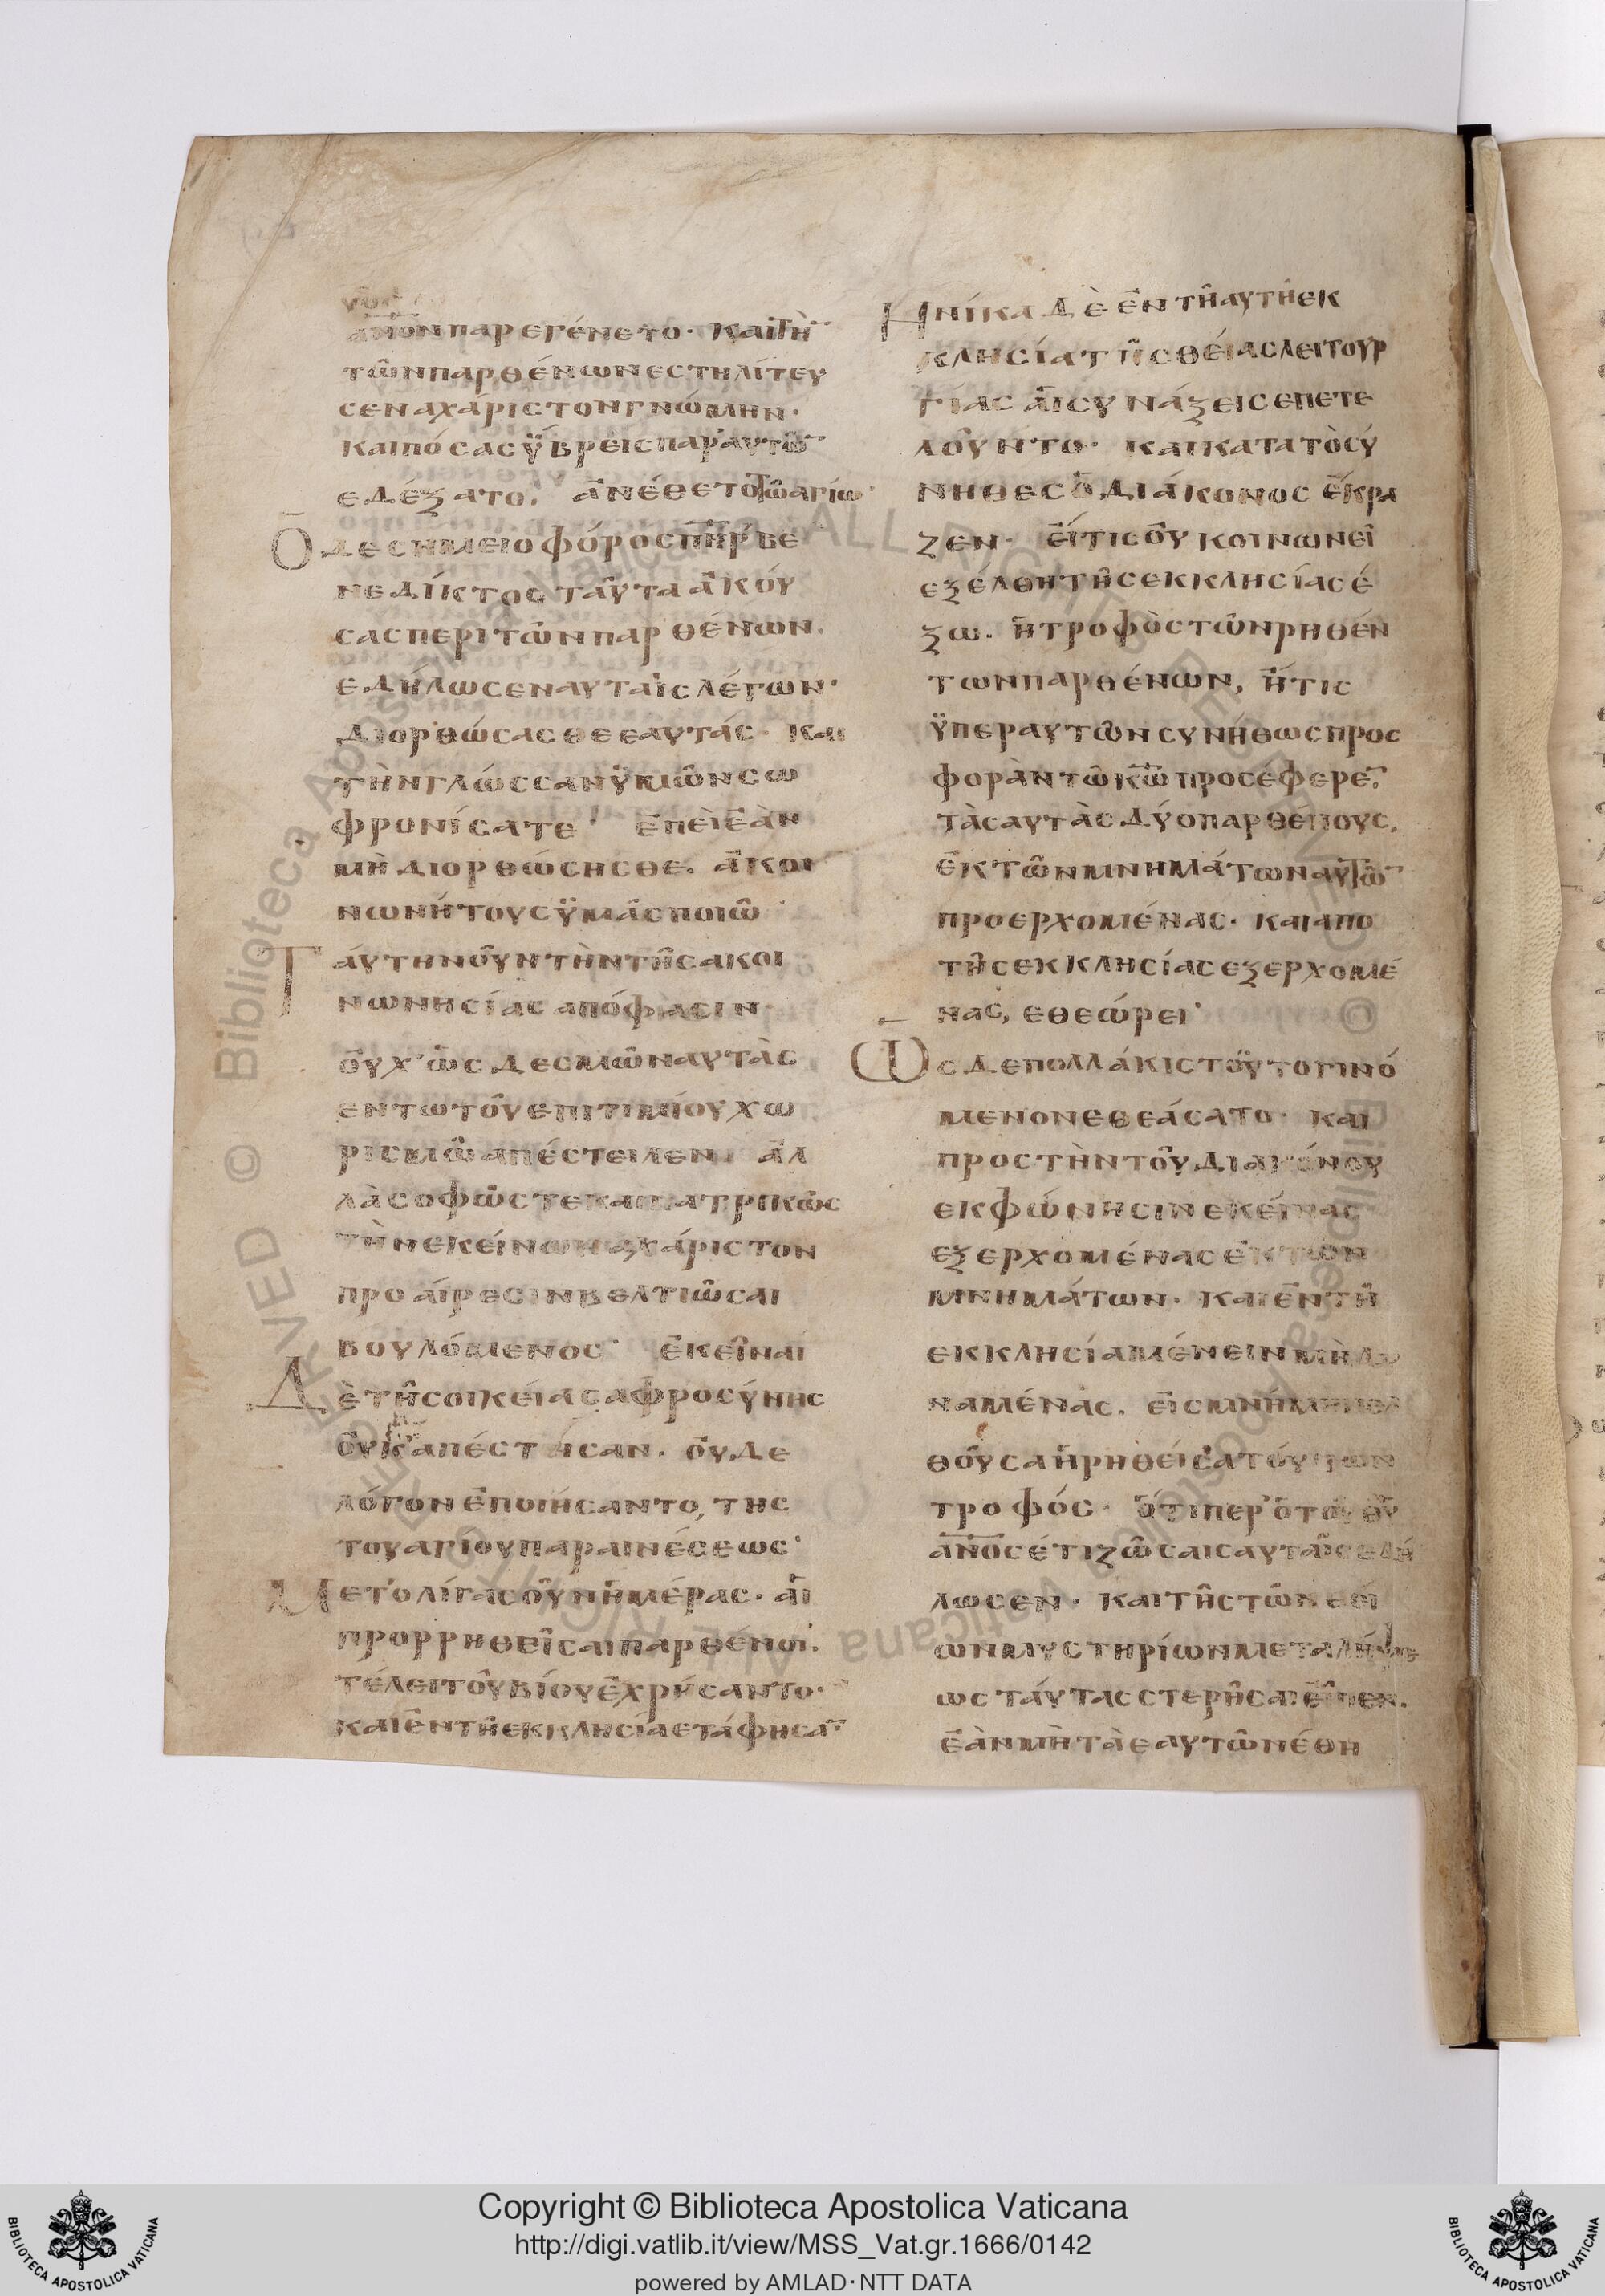 ἀ̅ν̅ο̅ν̅ παρεγένετο· καὶ τὴ̅
τῶν παρθένων ἐστηλίτευ
σεν ἀχάριστον γνώμην·
καὶ πόσας ὕβρεις παρ' αυτῶ̅
εδέξατο· ἀνέθετο τῶ ἁγίω·
Ὁ δε σημειοφόρος π̅η̅ρ̅ βε
νεδίκτος ταῦτα ἀκού
σας περι τῶν παρθένων.
εδήλωσεν αυταῖς λέγων·
Διορθώσασθε εαυτάς· και
τὴν γλώσσαν ὑμῶν σω
φρονίσατε· ἐπεὶ ἐὰν
μὴ διορθώσησθε. ἀκοι
νωνήτους ὑμᾶς ποιῶ·
Ταύτην οὖν τὴν τῆς ακοι
νωνησίας απόφασιν
οὐχ' ὡς δεσμῶν αυτὰς
εν τω τοῦ επιτιμίου χω
ρισμῶ απέστειλεν· ἀλ
λὰ σοφῶς τε και ιατρικῶς
τὴν εκείνων αχάριστον
προαίρεσιν βελτιῶσαι
βουλόμενος· ἐκεῖναι
Δὲ τῆς οικείας αφροσύνης
οὐκ απέστησαν. οὐδε
λόγον ἐποιήσαντο, της
του αγίου παραινέσεως·
Μετ' ολίγας οὖν ἡμέρας· αἱ
προρρηθεῖσαι παρθένοι.
τέλει τοῦ βίου ἐχρήσαντο·
και ἐν τῆ εκκλησία ετάφησα̅
Ηνίκα δὲ ἐν τῆ αυτῆ εκ
κλησία τῆς θείας λειτουρ
γίας αἱ συνάξεις επετε
λοῦντο· και κατα τὸ σύ
νηθες ὁ διάκονος ἔκρα
ζεν· εἴ τις οὐ κοινωνεῖ
εξέλθη τῆς εκκλησίας έ
ξω. ἡ τροφὸς τῶν ρηθέν
των παρθένων, ἥτις
ὑπερ αυτῶν συνήθως προς
φορὰν τῶ κ̅ω̅ προσέφερε̅·
τὰς αυτὰς δύο παρθένους,
ἐκ τῶν μνημάτων αυτῶ̅
προερχομένας· και απο
τῆς εκκλησίας εξερχομέ
νας, εθεώρει·
Ως δε πολλάκις τοῦτο γινό
μενον εθεάσατο· και
προς τὴν τοῦ διακόνου
εκφώνησιν εκείνας
εξερχομένας ἐκ τῶν
μνημάτων· και ἐν τῆ
εκκλησία μένειν μὴ δυ
ναμένας. εἰς μνήμην ελ
θοῦσα ἡ ρηθεῖσα τούτων
τροφός· ἅ τι περ ὁ του θ̅υ̅
ἀ̅ν̅ο̅ς̅ έτι ζώσαις αυταῖς εδή
λωσεν· και τῆς τῶν θεί
ων μυστηρίων μεταλήψε
ως ταύτας στερῆσαι εἶπεν.
ἐὰν μὴ τὰ εαυτῶν έθη
BIBLIOTECA APOSTOLICA VATICANA
Copyright © Biblioteca Apostolica Vaticana
http://digi.vatlib.it/view/MSS_Vat.gr.1666/0142
powered by AMLAD·NTT DATA
BIBLIOTECA APOSTOLICA VATICANA